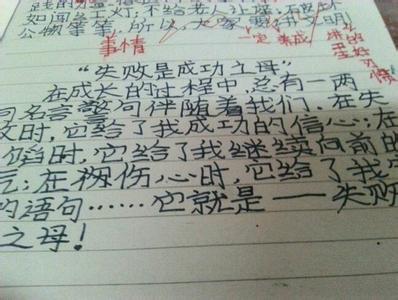 践的
如闯红灯,不给老人让座,
公物等等,所以,大家要讲文明
事情
一定 养成 讲卫生的好习惯
“失败是成功之母”
在成长的过程中,总有一两
句名言警句伴随着我们.在失
败时,它给了我成功的信心;在
陷时,它给了我继续向前的
气;在我伤心时,它给了我
的语句……它就是——失败
之母!